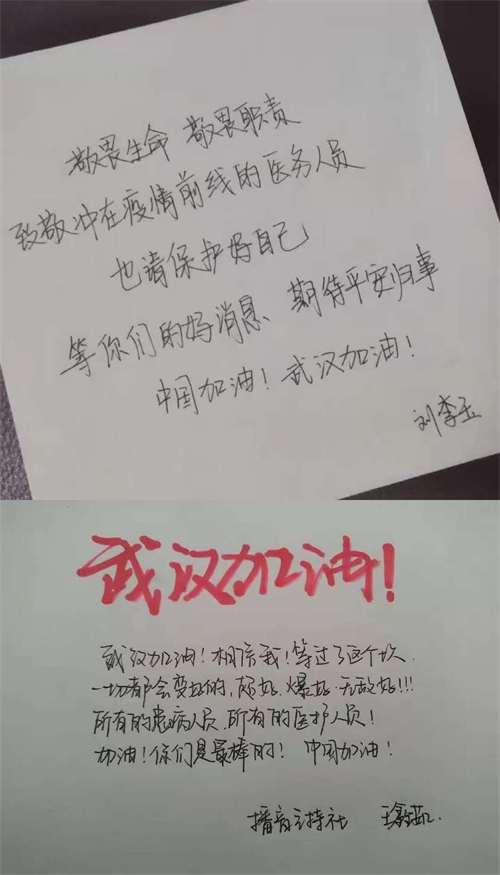 敬畏生命 敬畏职责
致敬冲在疫情前线的医务人员
也请保护好自己
等你们的好消息、期待平安归事
中国加油！武汉加油！
刘李玉
武汉加油！
武汉加油！相信我！等过了这个坎
一切都会变好的,超好.爆好.无敌好!!!
所有的患病人员.所有的医护人员！
加油！你们是最棒的！ 中国加油！
播音主持社